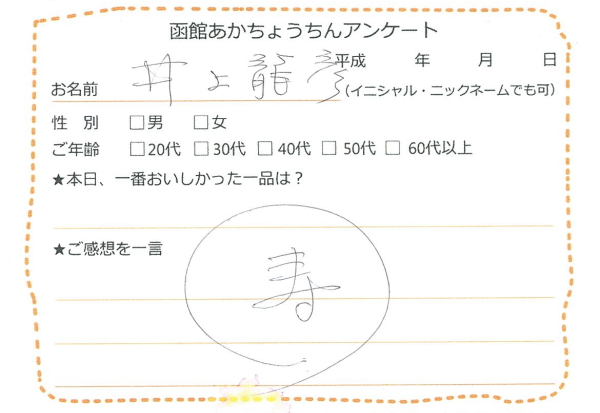 函館あかちょうちんアンケート
平成　年　月　日
お名前 井上龍彦 (イニシャル・ニックネームでも可)
性　別 □男 □女
ご年齢 □20代 □30代 □40代 □50代 □60代以上
★本日、一番おいしかった一品は？
★ご感想を一言
寿